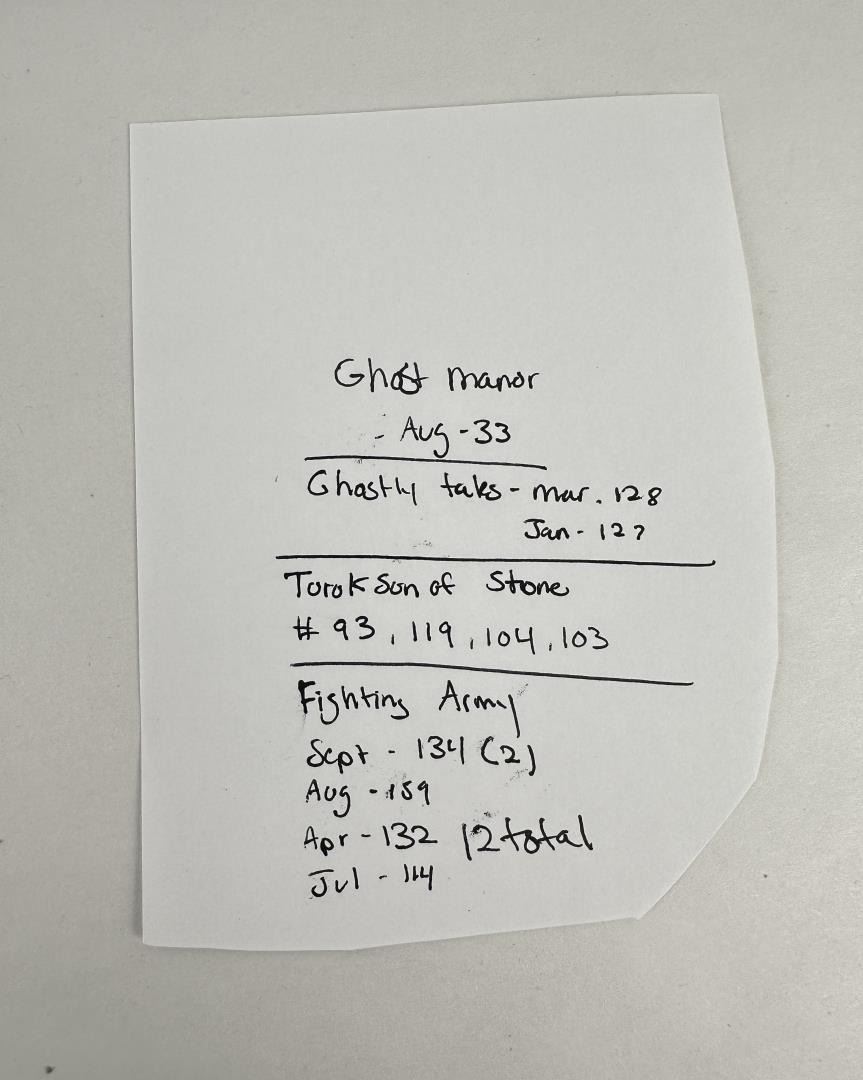 Ghost manor
- Aug - 33
Ghostly tales - mar. 128
Jan - 127
Turok Son of Stone
# 93, 119, 104, 103
Fighting Army
Sept - 134 (2)
Aug - 159
Apr - 132 12 total
Jul - 114